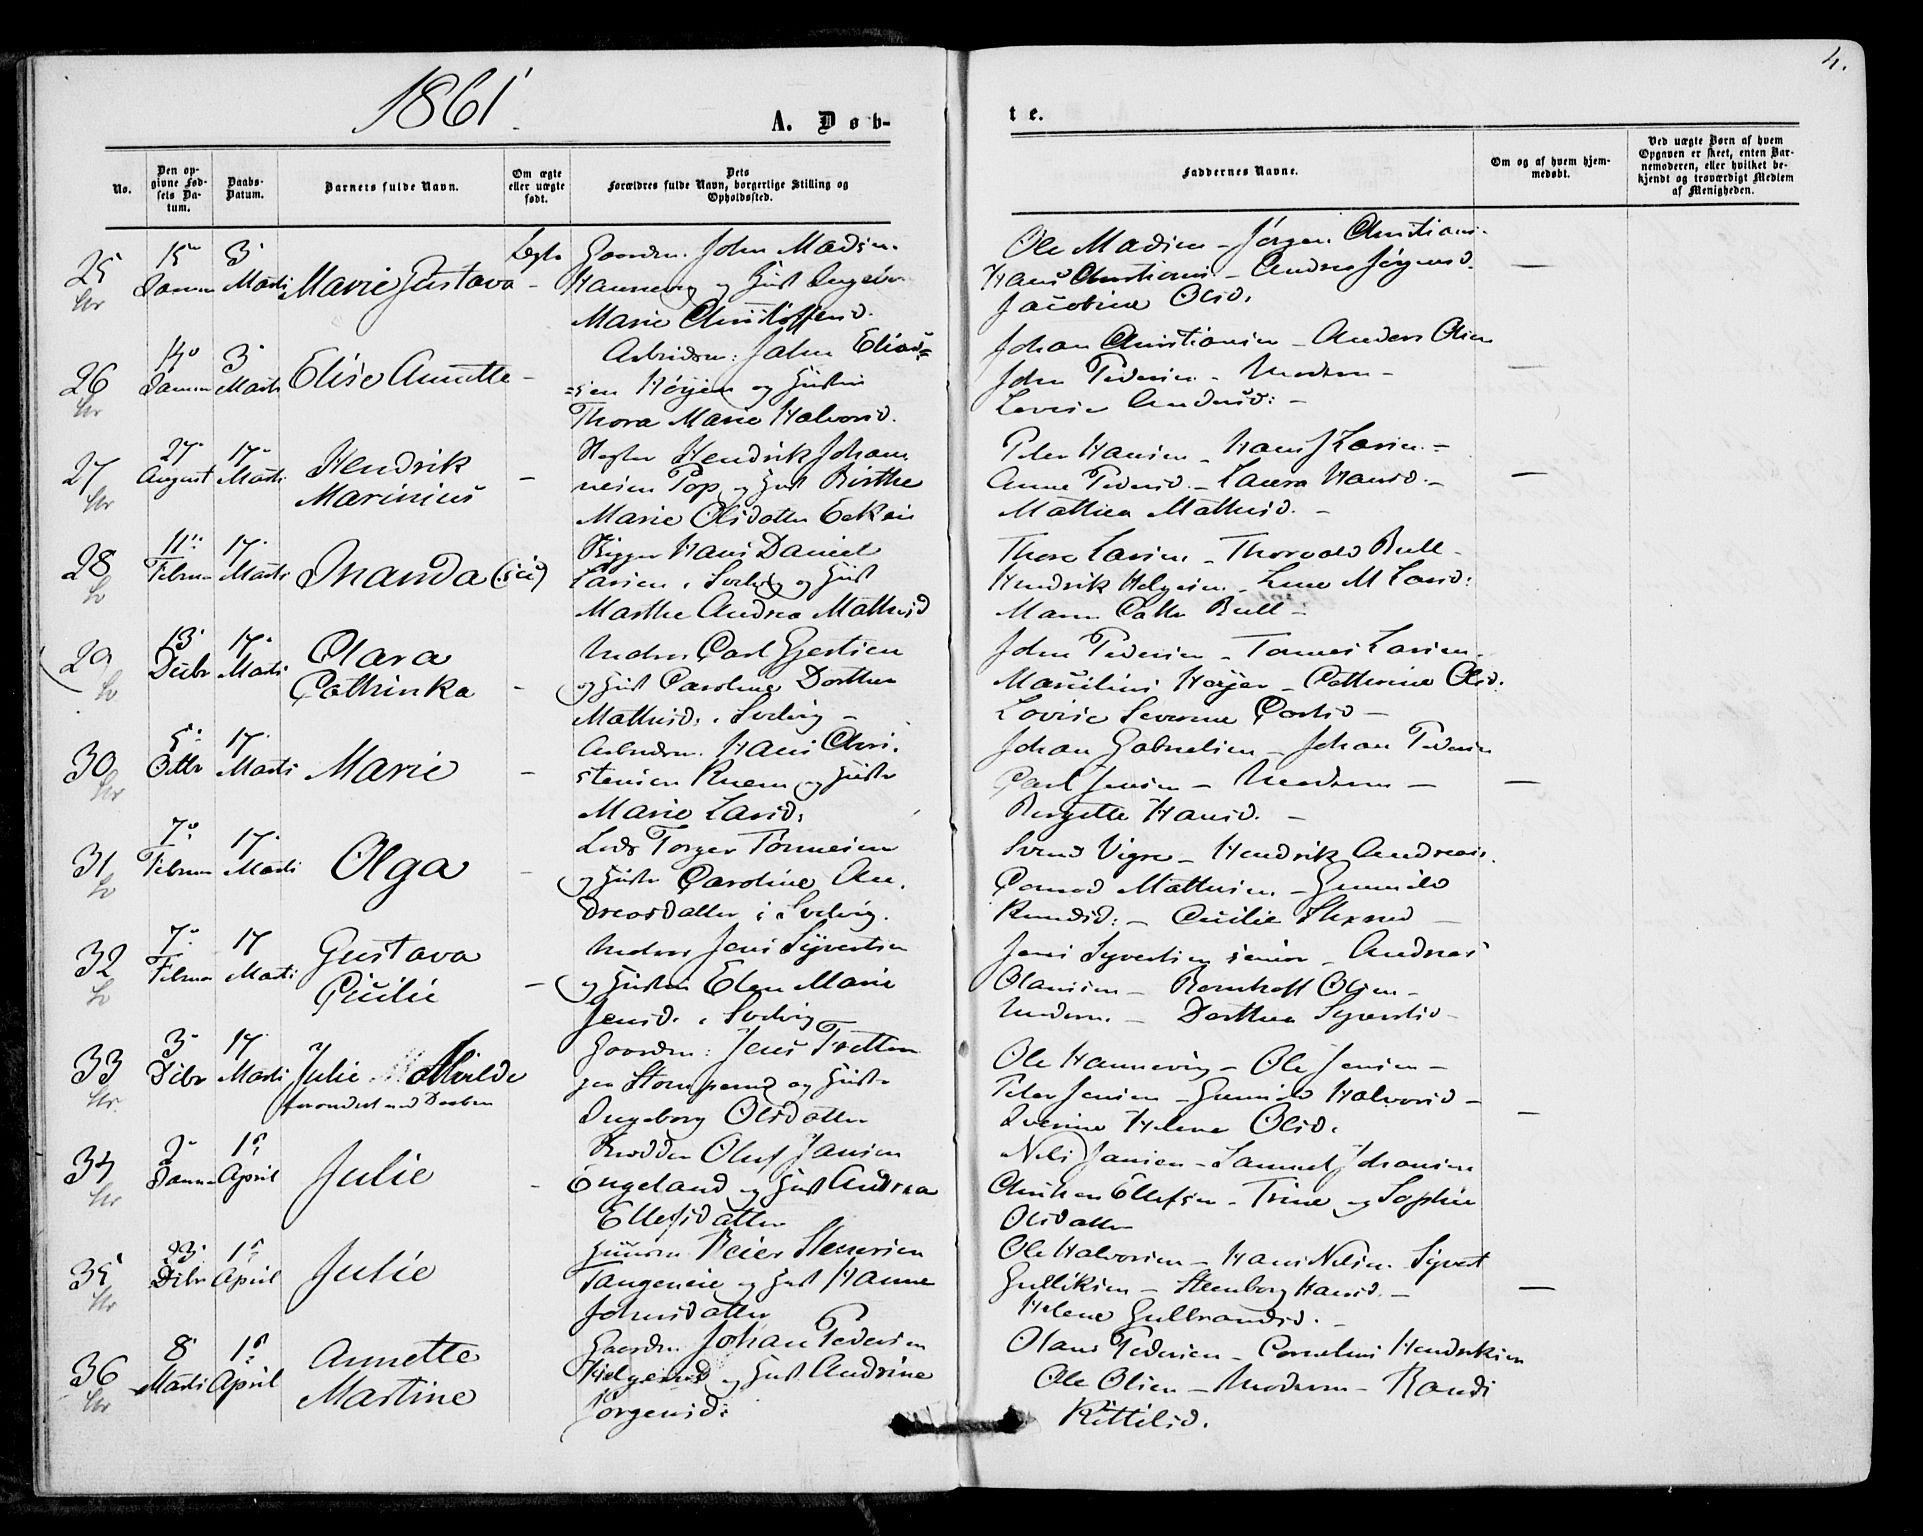 1861.
4.
A. Døb-
te.
No.
Den op-
givne Fød-
sels Da-
tum.
Daabs-
Datum.
Barnets fulde Navn.
Om ægte
eller uægte
født.
Dets
Forældres fulde Navn, borgerlige Stilling og
Opholdssted.
Faddernes Navne.
Om og af hvem hjem-
medøbt.
Ved uægte Børn af hvem
Opgaven er skeet, enten Bar-
nemoderen, eller hvilket be-
kjendt og troværdigt Medlem
af Menigheden.
25 15 Januar 3 Marts Marie Gustava
John Madsen
Hannevig og Hust
Marie Christoffersd.
Ole Madsen - Jørgen Christians.
Hans Christians - Andrea Jørgensd.
Jacobine Olsd.
26 14 Januar 3 Marts Elise Annette -
Arbeidsm: John Elias=
=sen Høyen og Hustru
Thora Marie Halvorsd.
Johan Christiansen - Anders Olsen
John Pedersen - Moderen -
Lovise Andersd: -
27 27 August 17 Marts Hendrik
Marinius -
Hendrik Johan
nesen Pop og Hust Birthe
Marie Olsdatter
Peter Hansen - Hans J Larsen -
Anne Pedersd. - Laura Hansd. -
Mathea Mathisd. -
28 11 Februar 17 Marts Inanda (sic)
Rigger Hans Daniel
Larsen i Svelvig og Hust
Marthe Andrea Mathisd
Thore Larsen - Thorvald Bull -
Hendrik Helgesen - Lene M Larsd:
Bull -
29 13 Decbr 17 Marts Clara
Cathinka -
Carl Gjertsen
og Hust Caroline Dorthea
Mathisd. i Svelvig -
John Pedersen - Tønnes Larsen -
Marcelius Høyer - Catherine Olsd.
Lovise Severine Carlsd -
30 5 Octbr 17 Marts Marie -
Arbeidsm. Hans Chri-
stensen Ruem og Hustr
Marie Larsd.
Johan Gabrielsen - Johan Pedersen
Carl Jensen - Moderen -
Birgitte Hansd. -
31 7 Februar 17 Marts Olga -
Lods Torger Tønnesen
og Hustr Caroline An-
dreasdatter i Svelvig.
Svend Vigre - Hendrik Andreas.
Conrad Mathisen - Gunnild
Knudsd: - Cecilie
32 7 Februar 17 Marts Gustava
Cecilie -
Jens Syvertsen
og Hustru Elen Marie
Jensd. i Svelvig
Jens Syvertsen senior - Andreas
Olaussen - Bernhoft Olsen -
Moderen - Dorthea Syvertsd -
33 3 Decbr 17 Marts Julie Mathilde
forandret ved Daaben
Gaardm: Jens Tretten
gen og Hustr
Ingeborg Olsdatter
Ole Hannevig - Ole Jensen -
Peter Jensen - Gunild Halvorsd -
Helene Olsd.
34 2 Januar 1 April Julie -
Olaf Jansen
Engeland og Hust Andrea
Ellefsdatter
Nils Jansen - Samuel Johansen
Ellefsen - Trine og Sophie
Olsdatter
35 23 Decbr 1 April Julie
Reier Stenersen
Tangeneie og Hust Hanne
Johnsdatter
Ole Halvorsen - Hans Nilsen - Syvert
Gulliksen - Stenborg Hansd. -
Helene Gulbrandsd. -
36 8 Marts 1 April Annette
Martine
Gaardm. Johan Pedersen
Helgerud og Hust Andrine
Jørgensd:
Olaus Pedersen - Cornelius Hendriksen
Ole Olsen - Moderen - Randi
Kittilsd.